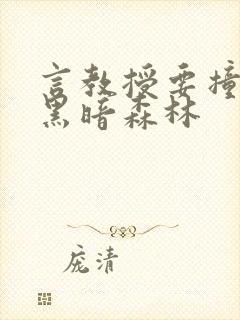 言教授要撞
黑暗森林
庞清